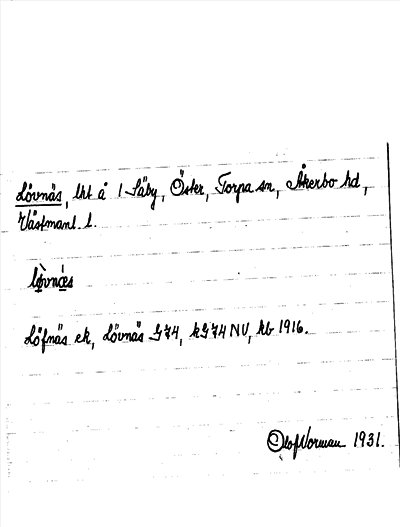 Lövnäs, lht å 1 Säby, Öster, Torpa sn, Åkerbo hd,
Västmanl. l.
lø̀vnæs
Löfnäs ek, Lövnäs G74, kG74 NV, kb 1916.
Olof Norman 1931.